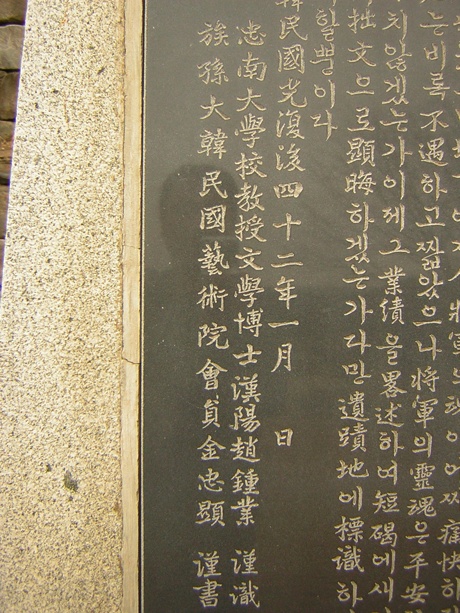 將軍의魂이어찌痛快하
는비록不遇하고짧았으나將軍의靈魂은平安
치않겠는가이제그業績을畧述하여短碣에새
拙文으로顯晦하겠는가다만遺蹟地에標識하
할뿐이다
韓民國光復後四十二年一月 日
忠南大學校教授文學博士漢陽趙鍾業 謹識
族孫大韓民國藝術院會員金忠顯 謹書